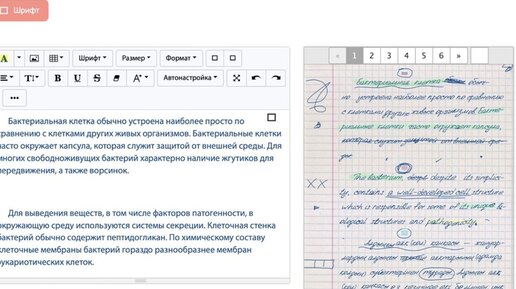 Шрифт
Шрифт Размер Формат
B U S A Автонастройка
Бактериальная клетка обычно устроена наиболее просто по
сравнению с клетками других живых организмов. Бактериальные клетки
часто окружает капсула, которая служит защитой от внешней среды. Для
многих свободноживущих бактерий характерно наличие жгутиков для
передвижения, а также ворсинок.
Для выведения веществ, в том числе факторов патогенности, в
окружающую среду используются системы секреции. Клеточная стенка
бактерий обычно содержит пептидогликан. По химическому составу
клеточные мембраны бактерий гораздо разнообразнее мембран
эукариотических клеток.
« 1 2 3 4 5 6 »
Бактериальная клетка обыч-
но устроена наиболее просто по сравнению
с клетками других живых организмов. Бакте-
риальные клетки часто окружает капсула,
которая служит защитой от внешней сре-
ды.
The bacterium, despite its simplic-
ity, contains a well-developed cell structure
which is responsible for some of its unique bi-
ological structures and pathogenicity.